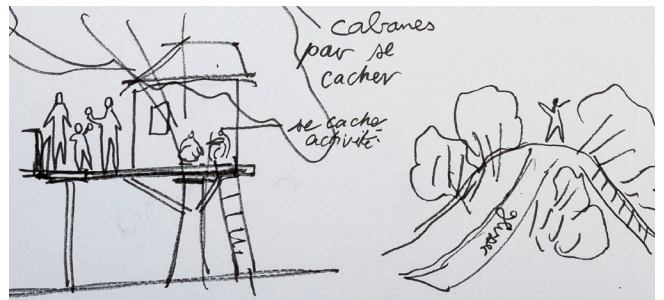 cabanes
par se
cacher
se cache
activité
glisser